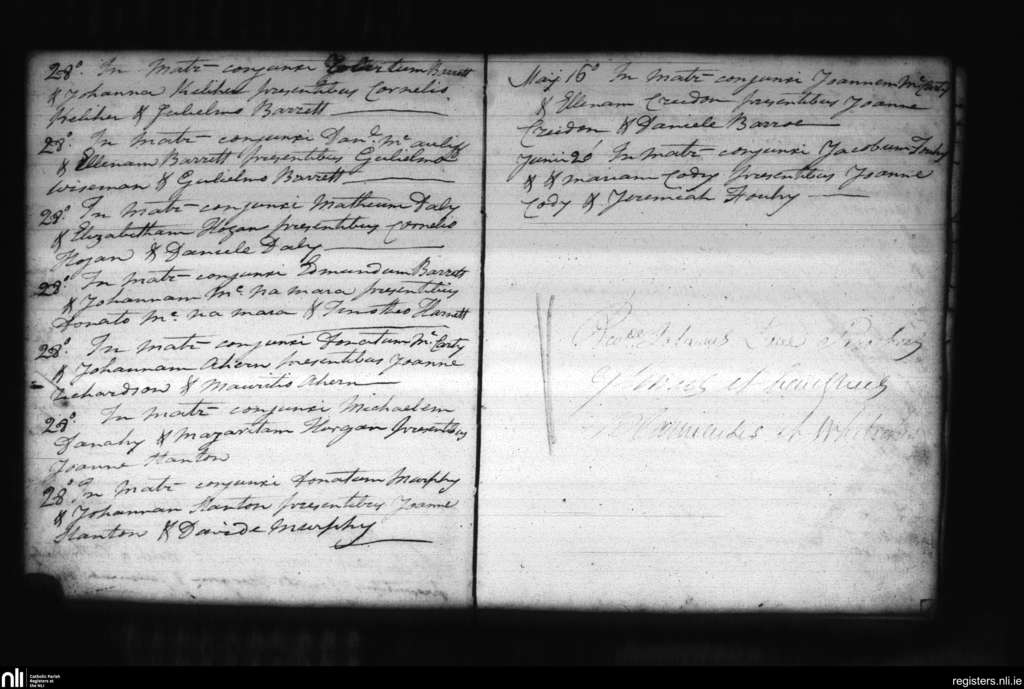 28° In Matr- conjunxi Robertum Barrett
& Johanna Keliher presentibus Cornelio
Keliher & Gulielmo Barrett
28° In Matr- conjunxi Danl Mc auliff
& Ellenam Barrett presentibus Gulielmo
Wiseman & Gulielmo Barrett
28° In Matr- conjunxi Matheum Daly
& Elizabetham Hogan presentibus Cornelio
Hogan & Daniele Daly
28° In Matr- conjunxi Edmundum Barrett
& Johannam Mc na mara presentibus
Donato Mc na mara & Timotheo Harnett
28° In Matr- conjunxi Donatum Mc Carty
& Johannam Ahern presentibus Joanne
Richardson & Mauritio Ahern
28° In Matr- conjunxi Michaelem
Danahy & Margaritam Horgan presentibus
Joanne Hanton
28° In Matr- conjunxi Donatum Murphy
& Johannan Hanton presentibus Joanne
Hanton & Davide Murphy
Maij 16° In Matr- conjunxi Joannem Mc Carty
& Ellenam Creedon presentibus Joanne
Creedon & Daniele Barroe
Junii 20 In Matr- conjunxi Jacobum Fouhy
& & Mariam Cody presentibus Joanne
Cody & Jeremiah Fouhy
et
et
nli
Catholic Parish
Registers at
the NLI
registers.nli.ie